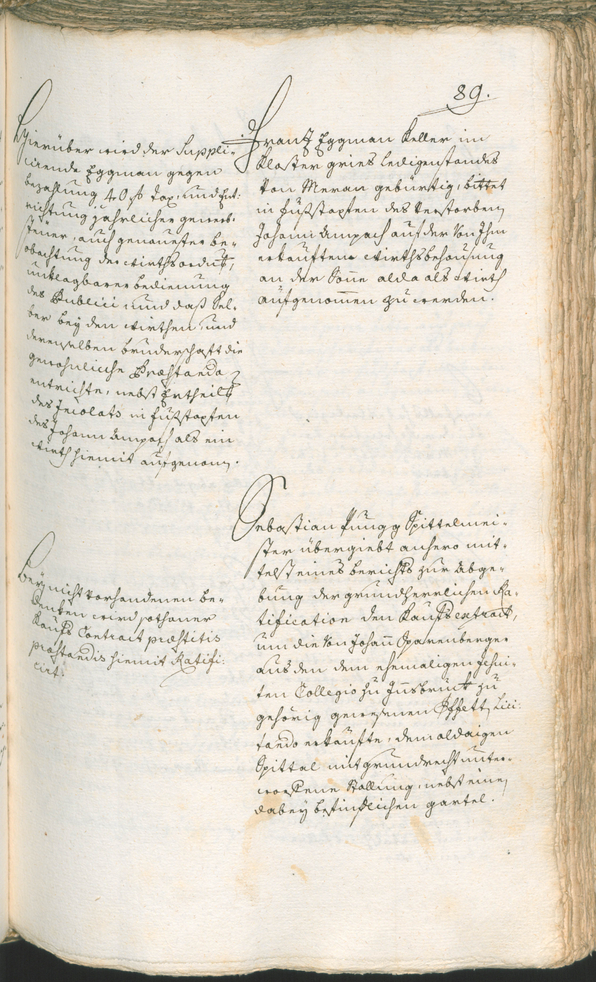 89.
Hierüber wird der Suppli-
cirende Eggman gegen
bezahlung 40 f tax, und Ent-
richtung jährlicher gewerb-
steuer, auch genauester be-
obachtung der wirthsordnung,
unklagbarer bedienung
des Publici, und daß sel-
ber bey den wirthen, und
derenselben bruderschaft die
gewohnliche Præstanda
entrichte, nebst Ertheilung
des Incolats in fußstapfen
des Johann Ampach als ein
wirth hiemit aufgenom.
Frantz Eggman Keller im
Kloster gries ledigenstandes
von Meran gebürtig, bittet
in fußstapfen des verstorben
Johann Ampach auf der von Ihm
erkauften wirthsbehausung
an der Sonne alda als wirth
aufgenommen zu werden.
Bey nicht vorhandenen be-
denken wird sothaner
Kaufs Contract præstitis
præstandis hiemit Ratifi-
cirt.
Sebastian Pungg Spittelmei-
ster übergiebt anhero mit-
telst eines berichts zur abge-
bung der grundherrlichen Ra-
tification den Kaufs extract,
um die von Johann Oparenberger
aus den dem ehemaligen Jesui-
ten Collegio zu Innsbruck zu
gehörig gewesenen Effetten Lici-
tando erkaufte, dem aldaigen
Spittel mit grundrecht unter-
worfene Stallung, nebst einen
dabey befindlichen gartel.